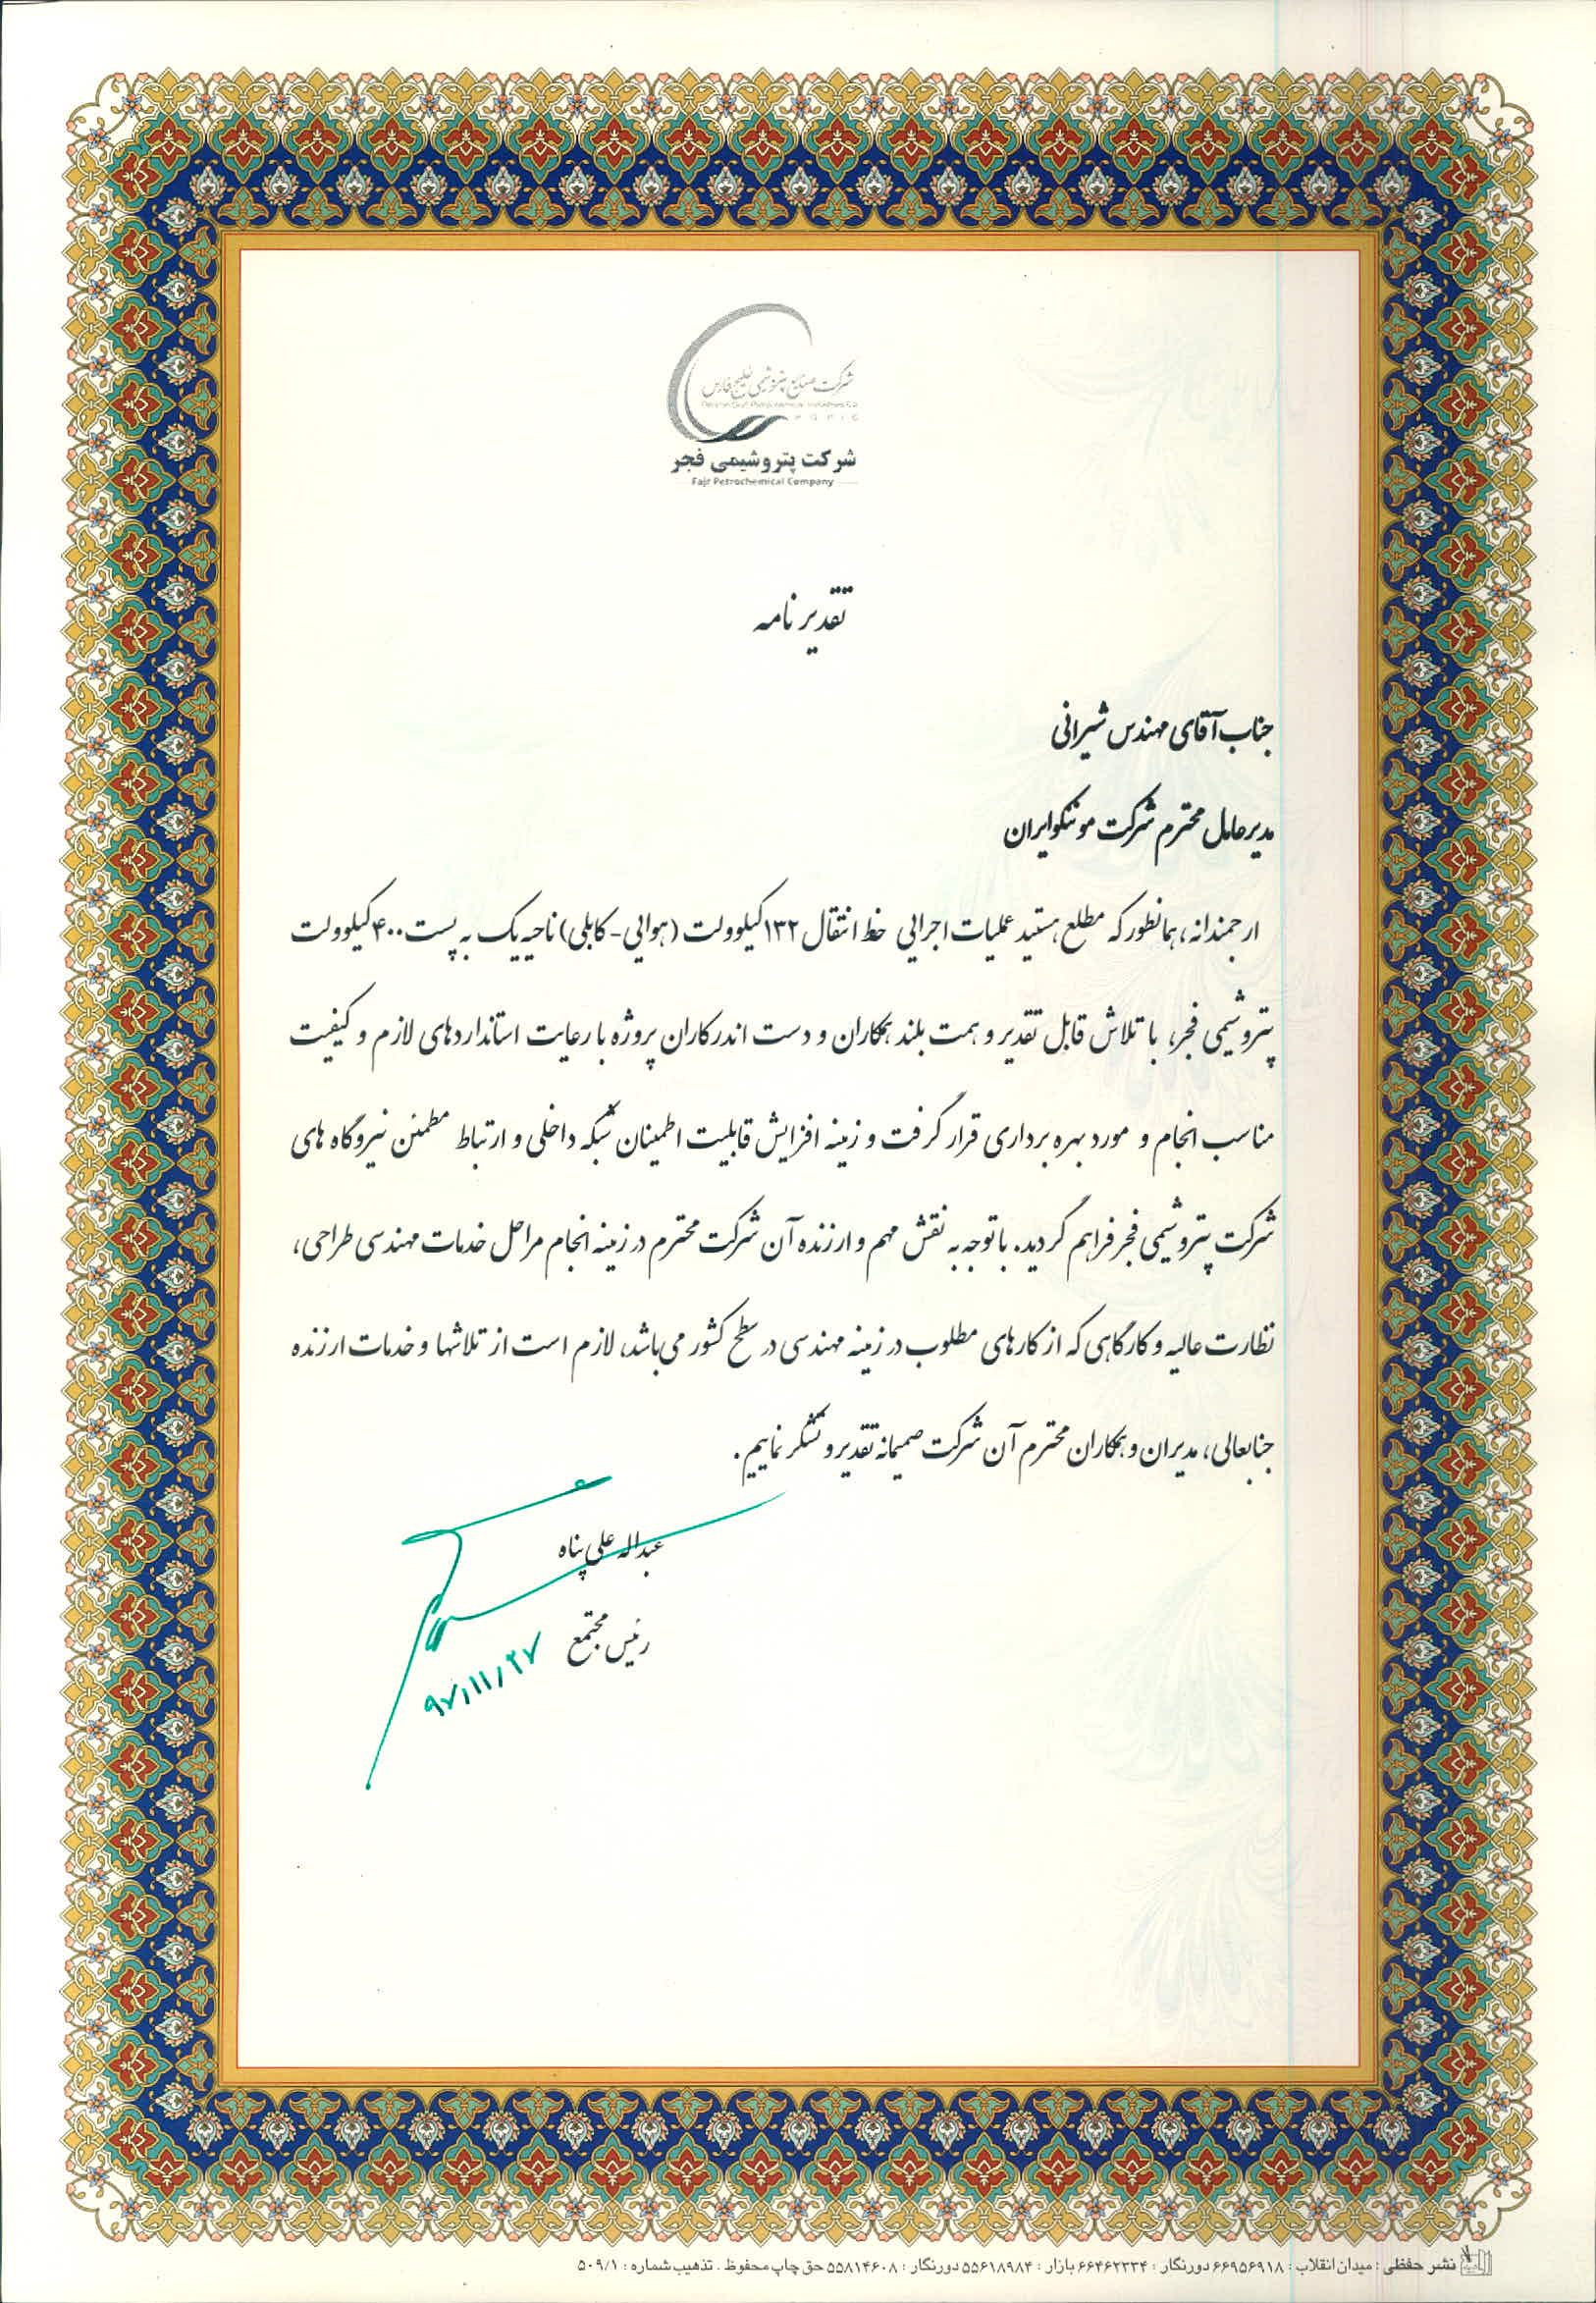 شرکت صنایع پتروشیمی خلیج فارس
Persian Gulf Petrochemical Industries Co.
P G P I C
شرکت پتروشیمی فجر
Fajr Petrochemical Company
تقدیر نامه
جناب آقای مهندس شیرانی
مدیرعامل محترم شرکت موننکو ایران
ارجمندانه، همانطور که مطلع هستید عملیات اجرایی خط انتقال ۱۳۲ کیلوولت (هوایی- کابلی) ناحیه یک به پست ۴۰۰ کیلوولت
پتروشیمی فجر، با تلاش قابل تقدیر و همت بلند همکاران و دست اندرکاران پروژه با رعایت استانداردهای لازم و کیفیت
مناسب انجام و مورد بهره برداری قرار گرفت و زمینه افزایش قابلیت اطمینان شبکه داخلی و ارتباط مطمئن نیروگاه های
شرکت پتروشیمی فجر فراهم گردید. با توجه به نقش مهم و ارزنده آن شرکت محترم در زمینه انجام مراحل خدمات مهندسی طراحی،
نظارت عالیه و کارگاهی که از کارهای مطلوب در زمینه مهندسی در سطح کشور می‌باشد، لازم است از تلاشها و خدمات ارزنده
جنابعالی، مدیران و همکاران محترم آن شرکت صمیمانه تقدیر و تشکر نماییم.
عبداله علی پناه
رئیس مجتمع
۹۷/۱۱/۲۷
نشر حفظی : میدان انقلاب : ۶۶۹۵۶۹۱۸ دورنگار : ۶۶۴۶۲۳۳۴ بازار : ۵۵۶۱۸۹۸۴ دورنگار : ۵۵۸۱۴۶۰۸ حق چاپ محفوظ . تذهیب شماره : ۵۰۹/۱